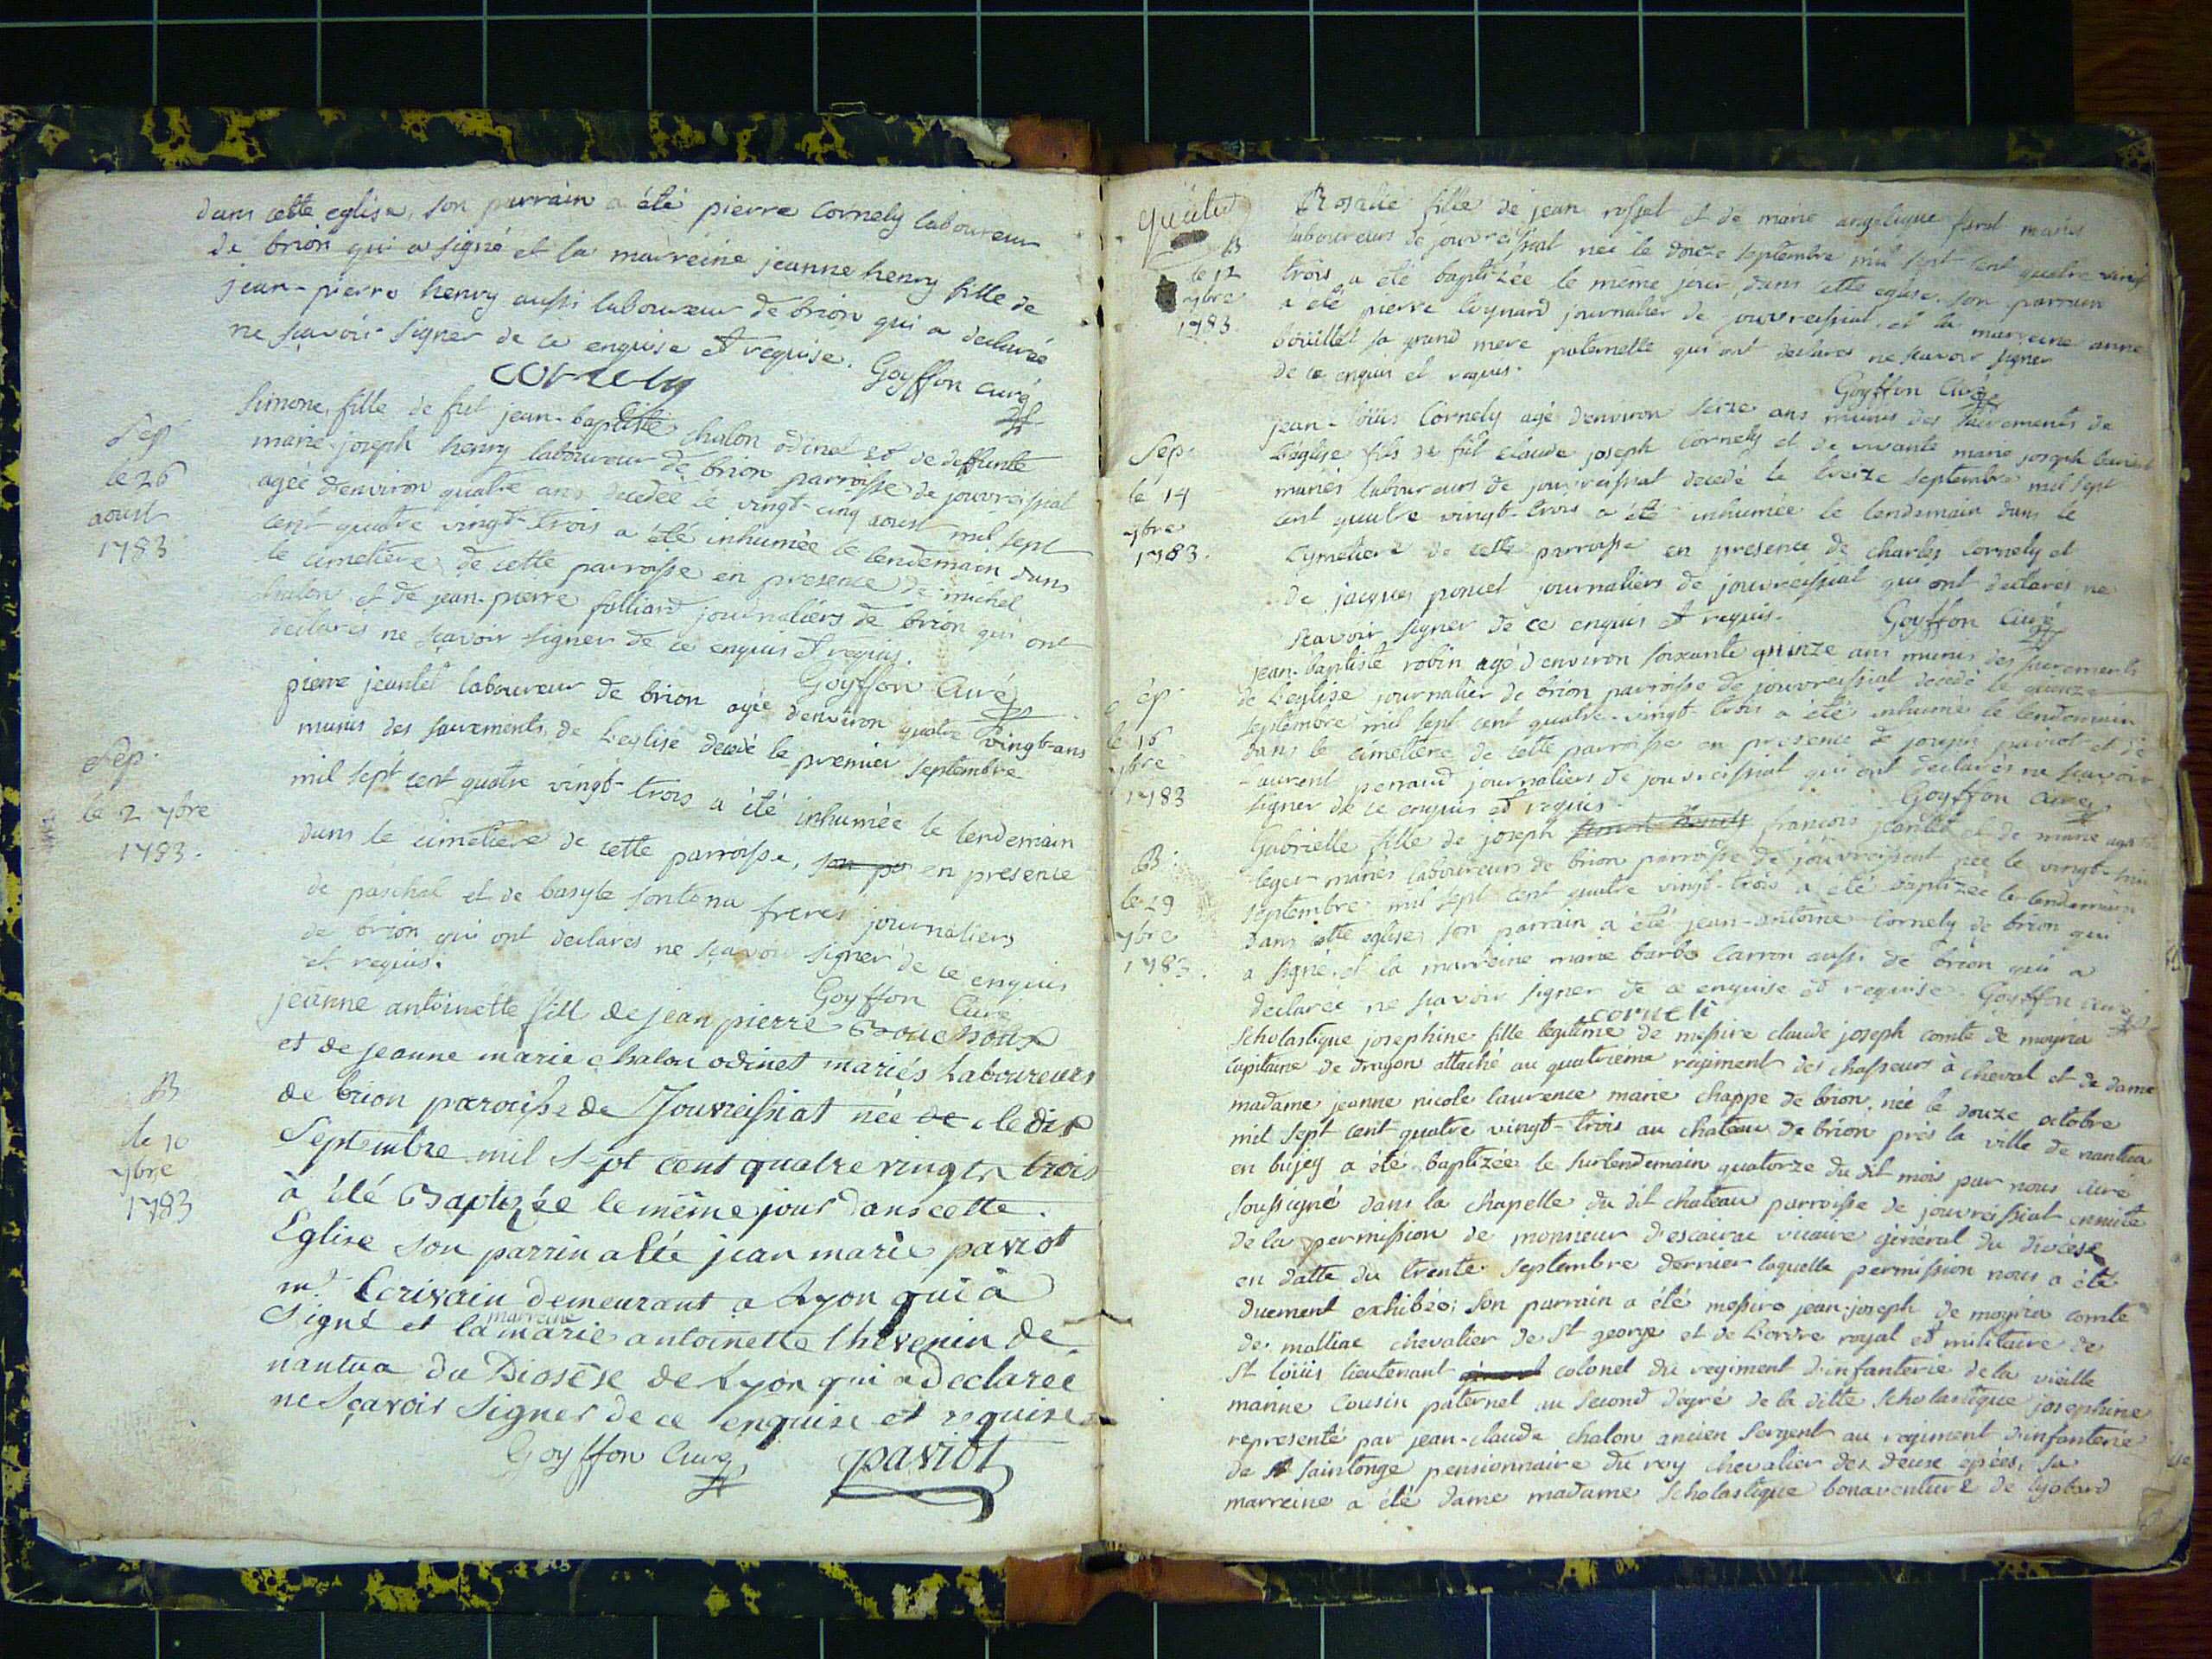 dans cette eglise, son parrain a été pierre Cornely laboureur
de brion qui a signé et la marreine jeanne henry fille de
jean-pierre henry aussi laboureur de brion qui a declarée
ne sçavoir signer de ce enquise et requise. Goyffon curé
cornely
Sep.
le 26
aoust
1783
Simone, fille de fut jean-baptiste chalon odinet et de deffunte
marie-joseph henry laboureur de brion parroisse de jouvreissiat
agée d'environ quatre ans decedée le vingt-cinq aoust mil sept
cent quatre vingt-trois a été inhumée le lendemain dans
le cimetiere de cette parroisse en presence de michel
chalon et de jean-pierre folliard journaliers de brion qui ont
declarés ne sçavoir signer de ce enquis et requis.
Goyffon Curé
Sep.
le 2 7bre
1783.
pierre jeantet laboureur de brion agée d'environ quatre vingt-ans
munis des sacrements de L'eglise decedé le premier septembre
mil sept cent quatre vingt-trois a été inhumée le lendemain
dans le cimetiere de cette parroisse, son par en presence
de paschal et de basyle sontona freres journaliers
de brion qui ont declarés ne sçavoir signer de ce enquis
et requis.
Goyffon Curé
B
le 10
7bre
1783
jeanne antoinette fill de jean pierre Bouchoux
et de jeanne marie chalon odinet mariés Laboureurs
de brion paroisse de Jouvreissiat née de le dix
Septembre mil Sept cent quatre vingts trois
à été Baptizée le même jour dans cette
Eglise son parrin a été jean marie paviot
md. Ecrivain demeurant a Lyon qui à
Signé et la marreine marie antoinette thevenin de
nantua du Diosèse de Lyon qui a declarée
ne Sçavoir Signer de ce enquise et requise
Goyffon Curé paviot
B
le 12
7bre
1783.
Rosalie fille de jean rosset et de marie angelique mariés
laboureurs de jouvreissiat née le douze septembre mil sept cent quatre vingt
trois a été baptizée le même jour, dans cette eglise. son parrain
a été pierre loynard journalier de jouvreissiat, et la marreine anne
bouillet sa grand mere paternelle qui ont declarés ne sçavoir signer
de ce enquis et requis.
Goyffon Curé
Sep.
le 14
7bre
1783.
jean-loüis Cornely agé d'environ seize ans munis des sacrements de
L'eglise fils de fut claude joseph Cornely et de vivante marie joseph
mariés laboureurs de jouvreissiat decedé le treize septembre mil sept
cent quatre vingt-trois a été inhumée le lendemain dans le
Cymetiere de cette parroisse en presence de charles Cornely et
de jacques poncet journaliers de jouvreissiat qui ont declarés ne
scavoir signer de ce enquis et requis.
Goyffon Curé
Sép.
le 16
7bre
1783
jean-baptiste robin agé d'environ soixante quinze ans munis des sacrements
de L'eglise journalier de brion parroisse de jouvreissiat decedé le quinze
septembre mil sept cent quatre-vingt-trois a été inhumé le lendemain
dans le cimetiere de cette parroisse en presence de joseph paviot et de
Laurent perraud journaliers de jouvreissiat qui ont declarés ne scavoir
signer de ce enquis et requis.
Goyffon Curé
B.
le 29
7bre
1783.
Gabrielle fille de joseph françois jeantet et de marie
leger mariés laboureurs de brion parroisse de jouvreissiat née le vingt-huit
septembre mil sept cent quatre vingt-trois a été baptizée le lendemain
dans cette eglise; son parrain a été jean-antoine Cornely de brion qui
a signé, et la marreine marie barbe Carron aussi de brion qui a
declarée ne sçavoir signer de ce enquise et requise. Goyffon curé
corneli
Scholastique josephine fille legitime de messire claude joseph comte de moyria
capitaine de dragon attaché au quatrième régiment des chasseurs à cheval et de dame
madame jeanne nicole laurence marie chappe de brion, née le douze octobre
mil sept cent quatre vingt-trois au chateau de brion près la ville de nantua
en bujey a été baptizée le surlendemain quatorze du dit mois par nous curé
soussigné dans la chapelle du dit chateau parroisse de jouvreissiat ensuite
de la permission de monsieur d'escairac vicaire géneral du diocèse
en datte du trente septembre dernier laquelle permission nous a été
duement exhibée; son parrain a été messire jean-joseph de moyria comte
de malliac chevalier de St george et de L'ordre royal et militaire de
St loüis lieutenant colonel du regiment d'infanterie de la vieille
marine cousin paternel au second degré de la ditte scholastique josephine
representé par jean-claude chalon ancien sergent au regiment d'infanterie
de saintonge pensionnaire du roy chevalier des deux epées, sa
marreine a été dame madame scholastique bonaventure de lyobard